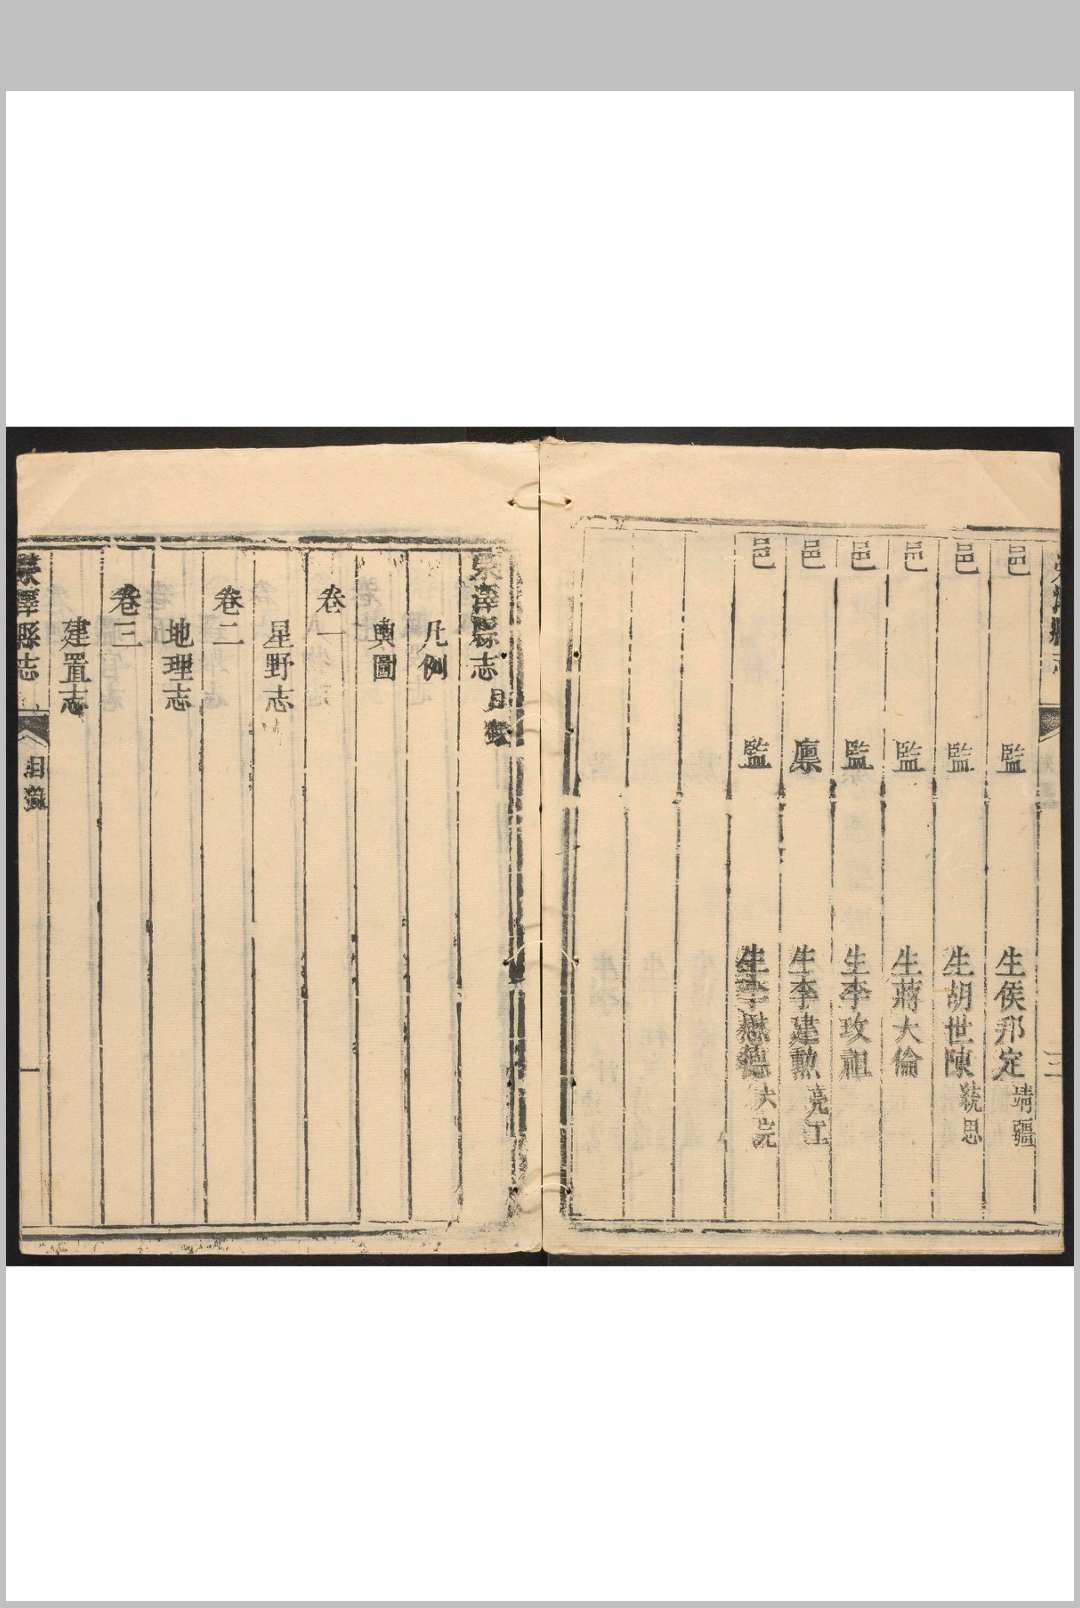 滎澤縣志
三
邑 監 生侯邦定 靖疆
邑 監 生胡世陳 統思
邑 監 生蔣大倫
邑 監 生李攻祖
邑 廪 生李建勲 亮工
邑 監 生李懋德
滎澤縣志 目錄
凡例
輿圖
卷一
星野志
卷二
地理志
卷三
建置志
滎澤縣志 目錄 一